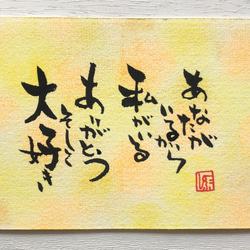 あなたが
いるから
私がいる
ありがとう
そして
大好き